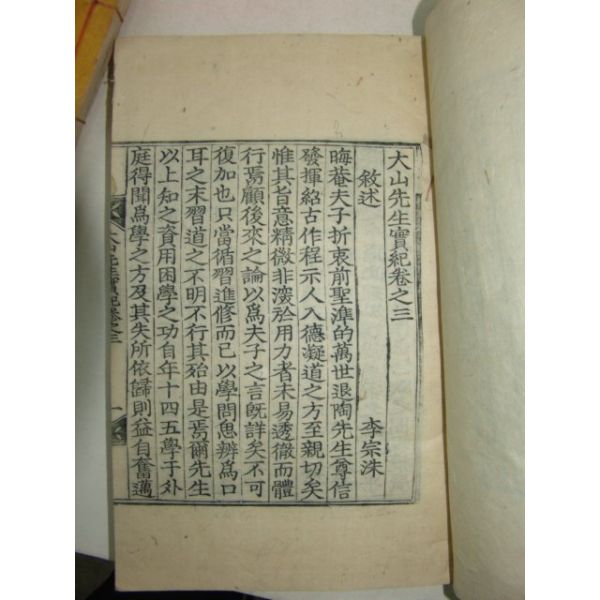 大山先生實紀卷之三
敘述 李宗洙
晦菴夫子折衷前聖準的萬世退陶先生尊信
發揮紹古作程示人入德凝道之方至親切矣
惟其旨意精微非深於用力者未易透徹而體
行焉顧後來之論以爲夫子之言旣詳矣不可
復加也只當循習進修而已以學問思辨爲口
耳之末習道之不明不行其殆由是焉爾先生
以上知之資用困學之功自年十四五學于外
庭得聞爲學之方及其失所依歸則益自奮邁
大山先生實紀卷之三 一